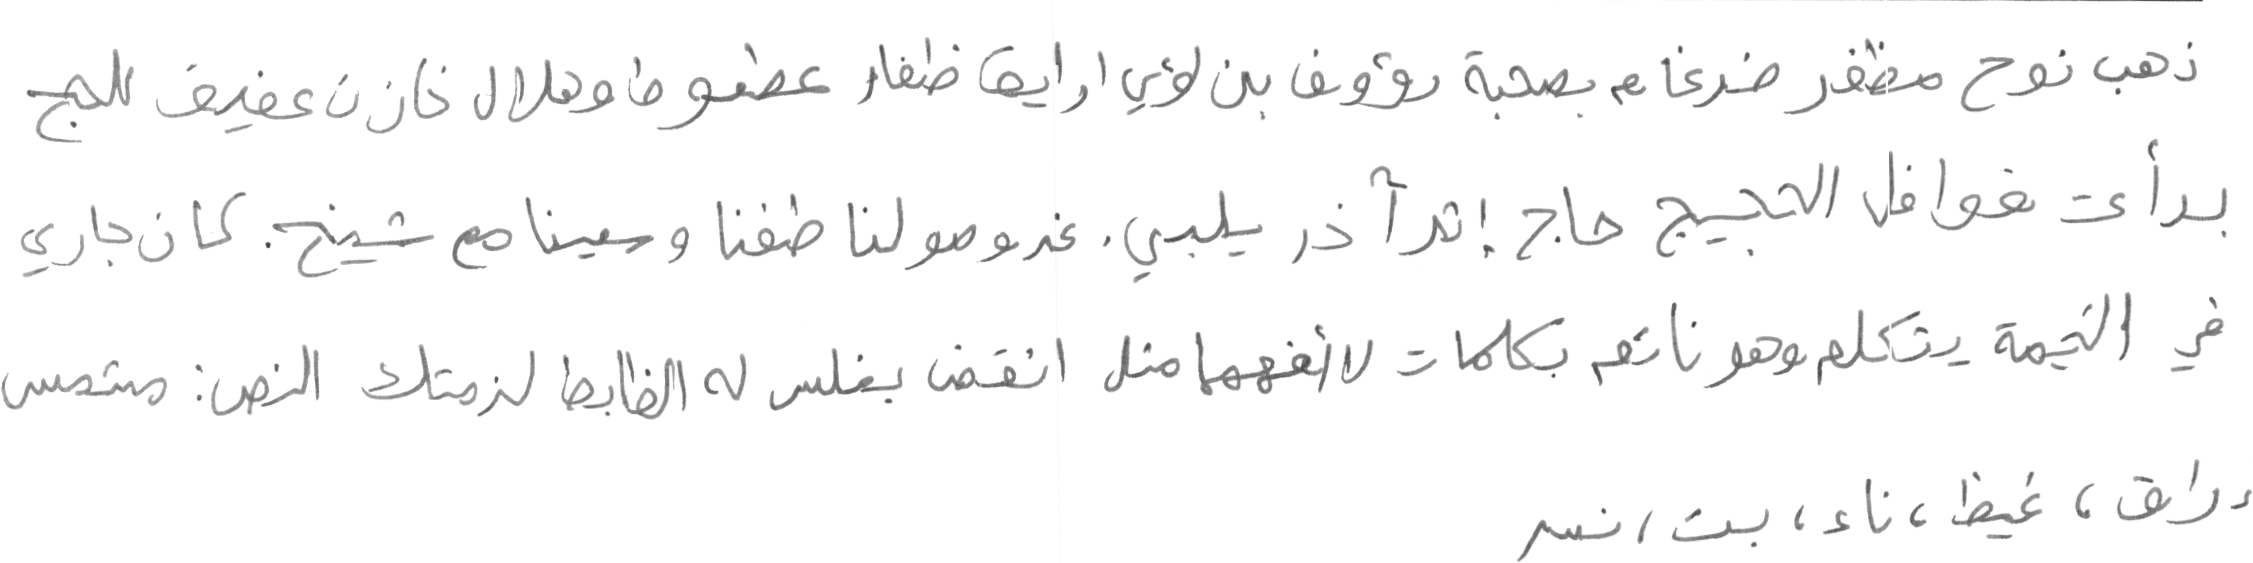 ذهب نوح مظفر ضرغام بصحبة رؤوف بن لؤي اد رايق ظفار عطعوط وهلال خازن عفيف للحج
بدأت قوافل الحجيج حاج إثر آخر يلبي. عند وصولنا طفنا وسعينا مع شيخ. كان جاري
في الخيمة يتكلم وهو نائم بكلمات لا أفهمها مثل انقض بغلس له الظابط لزمتك النص: متحمس
، رائق، غيظ، ناء، بت، نسر